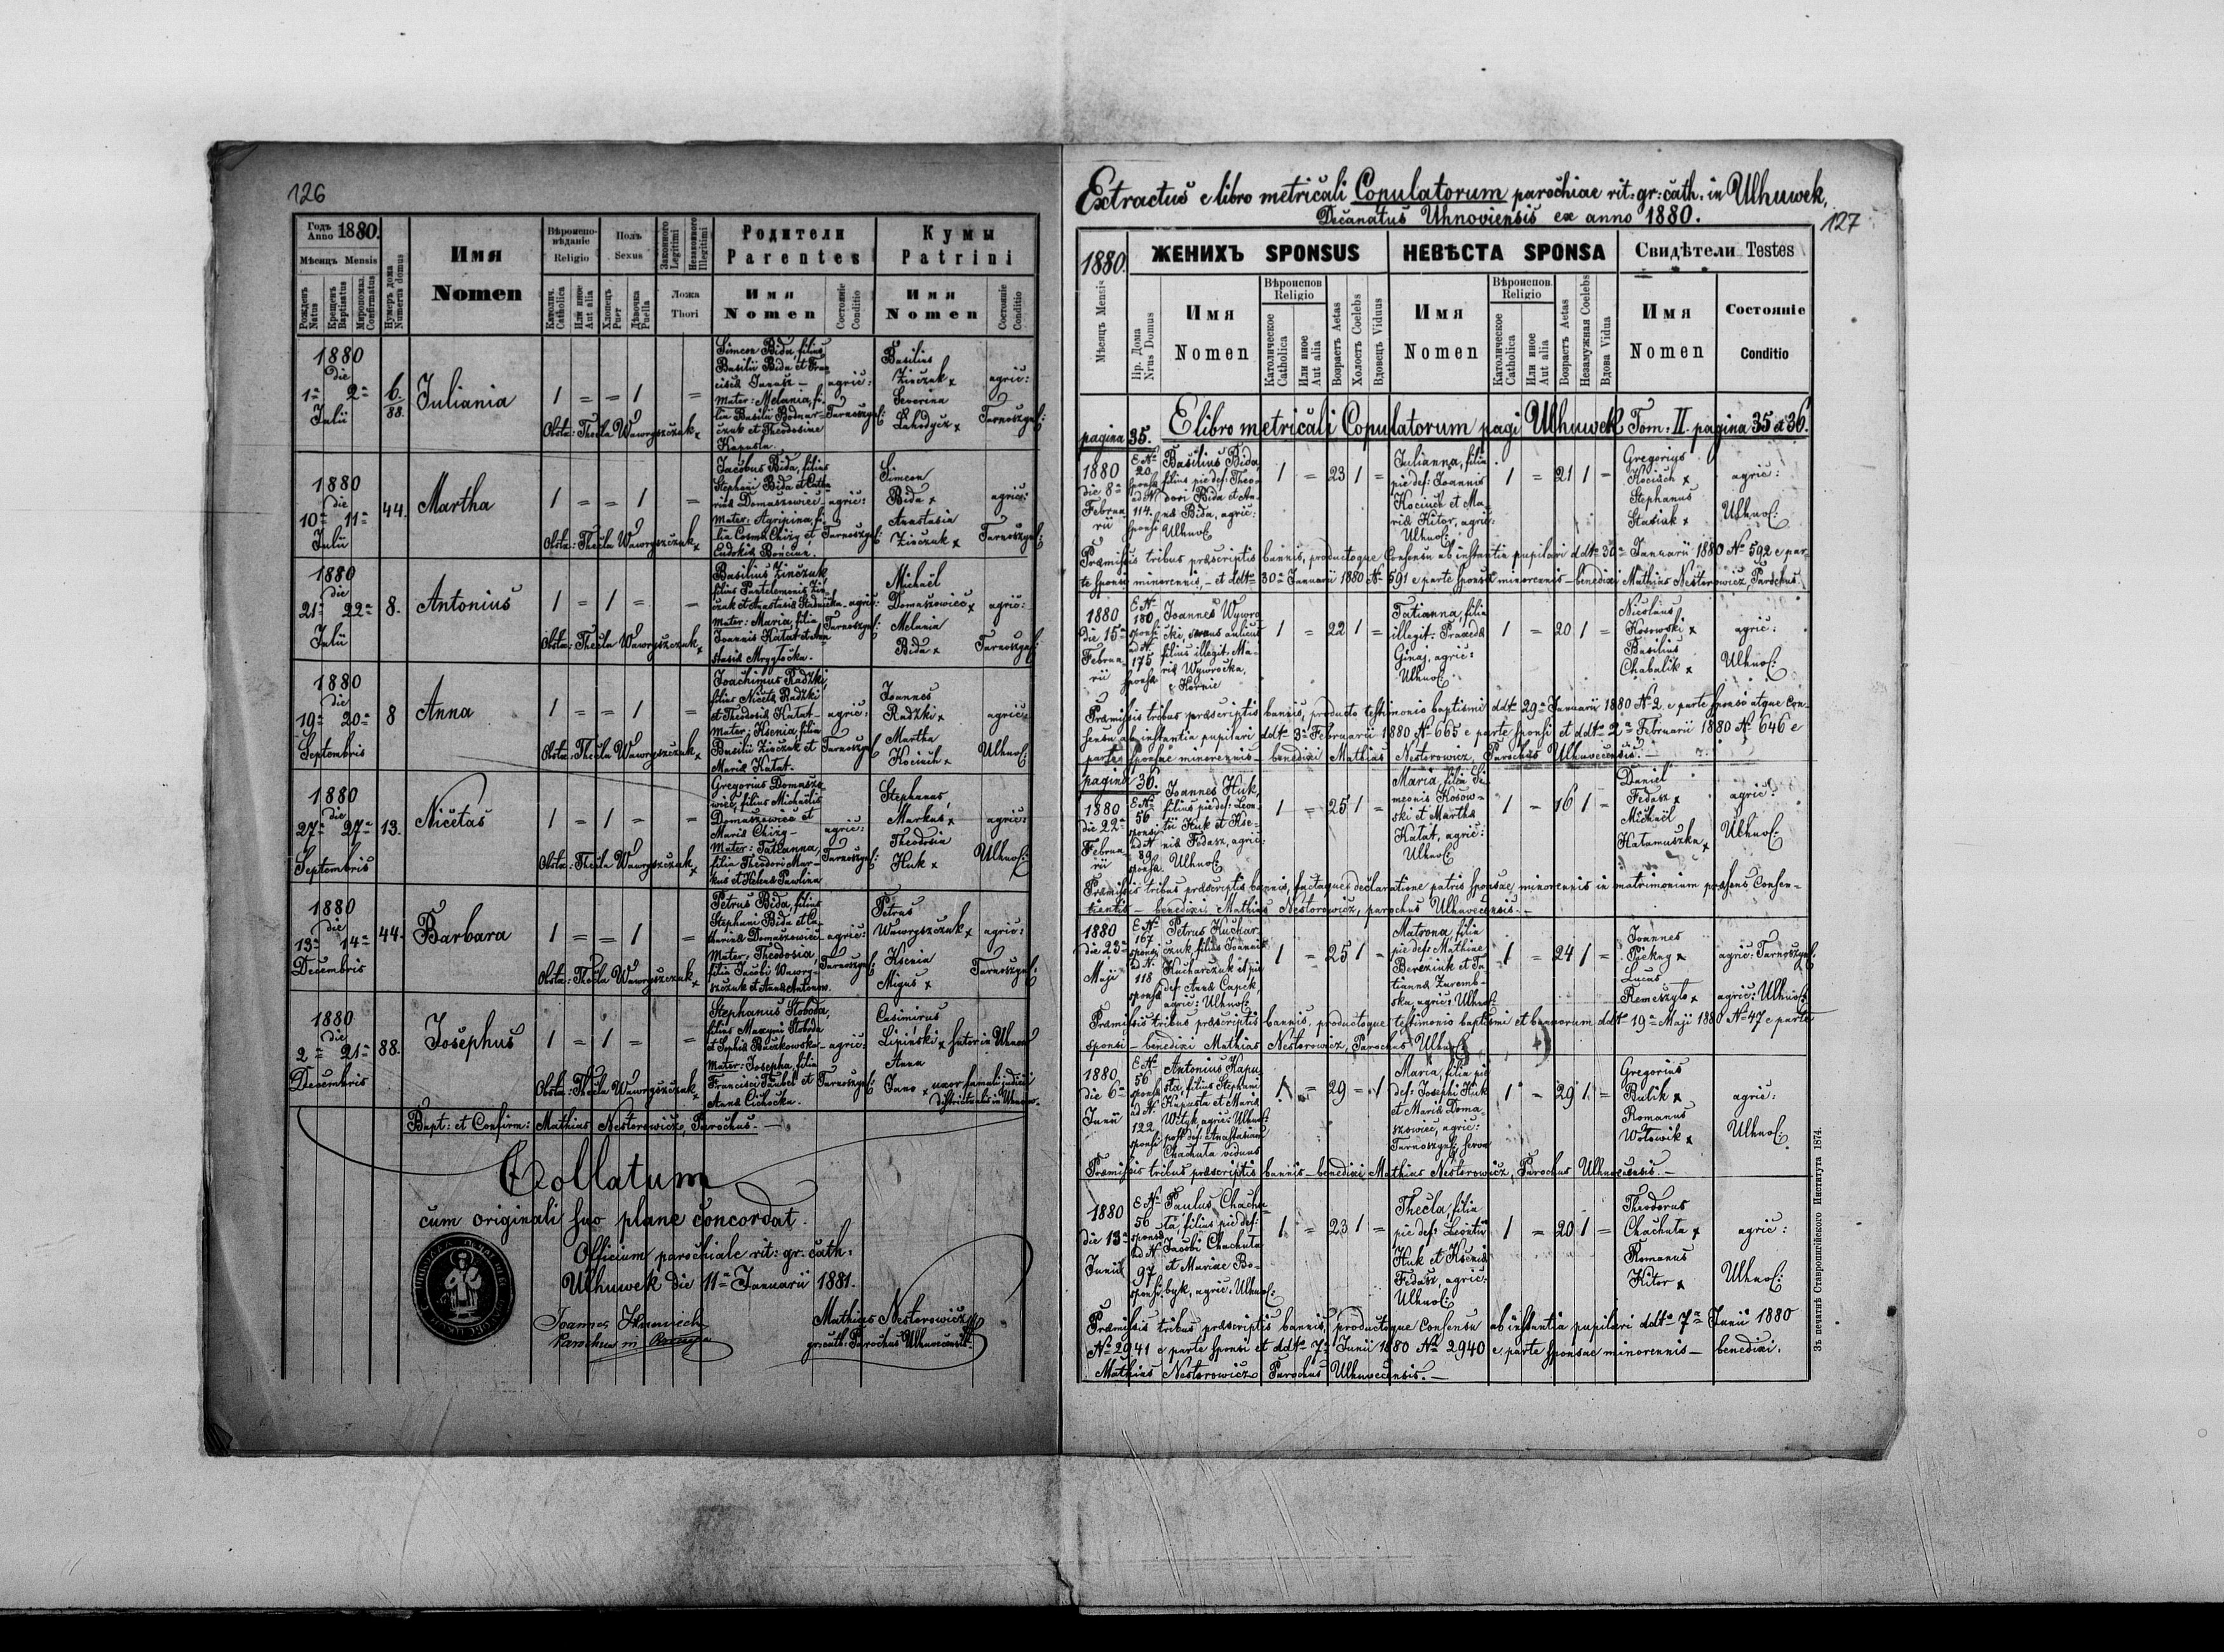 126
Годъ Anno 1880.
Мѣсяцъ Mensis
Рожденъ Natus
Крещенъ Baptisatus
Миропомаз. Confirmatus
Нумеръ дома Numerus domus
Имя
Nomen
Вѣроисповѣданіе
Religio
Католич. Catholica
Или иное Aut alia
Полъ
Sexus
Хлопецъ Puer
Дѣвочка Puella
Законного Legitimi
Незаконного Illegitimi
Ложа
Thori
Родители
Parentes
Имя
Nomen
Состояніе Conditio
Кумы
Patrini
Имя
Nomen
Состояніе Conditio
1880
die
1a 2a
Julii
6.
88.
Juliania
1 = = 1 =
Obstx: Thecla Wawryszczuk x
Simeon Bida, filius
Basilii Bida et Fran-
cisca Janasz – agric:
Mater: Melania, fi-
lia Basilii Bodnar-
czuk et Theodosiae
Kapusta.
Tarnoszyn:
Basilius
Zinczuk x
Severina
Lahodycz x
agric:
Tarnoszyn:
1880
die
10a 11a
Julii
44.
Martha
1 = = 1 =
Obstx: Thecla Wawryszczuk x
Jacobus Bida, filius
Stephani Bida et Catha-
rina Domaszowiec – agric:
Mater: Agripina, fi-
lia Cosma Chizy et
Eudokia Bonciun.
Tarnoszyn:
Simeon
Bida x
Anastasia
Zinczuk x
agric:
Tarnoszyn:
1880
die
21a 22a
Julii
8.
Antonius
1 = 1 = =
Obstx: Thecla Wawryszczuk x
Basilius Zinczuk
filius Pantelemonis Zin-
czuk et Anastasia Stadnicka – agric:
Mater: Maria, filia
Joannis Katat et Ana-
stasia Mryglocka.
Tarnoszyn:
Michaël
Domaszowiec x
Melania
Bida x
agric:
Tarnoszyn:
1880
die
19a 20a
Septembris
8
Anna
1 = = 1 =
Obstx: Thecla Wawryszczuk x
Joachimus Radzki
filius Niceta Radzki
et Theodosia Katat – agric:
Mater: Ksenia, filia
Basilii Zinczuk et
Maria Katat.
Tarnoszyn:
Joannes
Radzki x
Martha
Kociuch x
agric:
Ulhuof:
1880
die
27a 27a
Septembris
13.
Nicetas
1 = 1 = =
Obstx: Thecla Wawryszczuk x
Gregorius Domaszo-
wiec, filius Michaëlis
Domaszowiec et
Maria Chizy –
Mater: Tatianna,
filia Theodori Mar-
kus et Helena Pawlina
agric:
Tarnoszyn:
Stephanus
Markus x
Theodosia
Huk x
agric:
Ulhuof:
1880
die
13a 14a
Decembris
44.
Barbara
1 = = 1 =
Obstx: Thecla Wawryszczuk x
Petrus Bida, filius
Stephani Bida et Ca-
tharina Domaszowiec – agric:
Mater: Theodosia,
filia Jacobi Wawry-
szczuk et Anna Antonow.
Tarnoszyn:
Petrus
Wawryszczuk x
Ksenia
Migus x
agric:
Tarnoszyn:
1880
die
2a 21a
Decembris
88.
Josephus
1 = 1 = =
Obstx: Thecla Wawryszczuk x
Stephanus Stoboda,
filius Maxymi Stoboda
et Sophia Buczkowska – agric:
Mater: Josepha, filia
Francisci Taubel et
Anna Cichocka.
Tarnoszyn:
Casimirus
Lipinski x sutor in Uhnow
Anna
Juno x uxor famuli judicii
districtualis in Uhnow.
Bapt: et Confirm: Mathias Nestorowicz, Parochus. –
Collatum
cum originali suo plane concordat.
Officium parochiale rit: gr: cath:
Ulhuwek die 11a Januarii 1881.
Mathias Nestorowicz
gr: cath: Parochus Ulhuvecensis.
Joannes
Parochus in
Extractus e libro metricali Copulatorum parochiae rit: gr: cath. in Ulhuwek,
Decanatus Uhnoviensis ex anno 1880.
127
1880.
Мѣсяцъ Mensis
ЖЕНИХЪ SPONSUS
НЕВѢСТА SPONSA
Свидѣтели Testes
Нр. Дома Nrus Domus
Имя
Nomen
Вѣроиспов.
Religio
Католическое Catholica
Или иное Aut alia
Возрастъ Aetas
Холостъ Coelebs
Вдовецъ Viduus
Имя
Nomen
Вѣроиспов.
Religio
Католическое Catholica
Или иное Aut alia
Возрастъ Aetas
Незамужная Coelebs
Вдова Vidua
Имя
Nomen
Состояніе
Conditio
pagina 35.
E libro metricali Copulatorum pagi Ulhuwek Tom: II. pagina 35 et 36.
1880
die 8a
Februa-
rii
E No
20
sponsa
ad N.
114.
sponsi
Basilius Bida
filius pie def: Theo-
dori Bida et An-
na Bida, agric:
Ulhuof:
1 = 23 1 =
Julianna, filia
pie def: Joannis
Kociuch et Ma-
ria Kitor, agric:
Ulhuof:
1 = 21 1 =
Gregorius
Kociuch x
Stephanus
Stasiuk x
agric:
Ulhuof:
Praemissis tribus praescriptis bannis, productoque Consensu ab instantia pupilari ddto 30a Januarii 1880 No 592 e par-
te sponsi minorennis, – et ddto 30a Januarii 1880 No 591 e parte sponsa minorennis – benedixi Mathias Nestorowicz, Parochus.
1880
die 15a
Februa-
rii
E No
180
sponsi
ad N.
175
sponsa
Joannes Wywro-
cki, servus aulicus
filius illegit: Ma-
ria Wywrocka,
e Kornie
1 = 22 1 =
Tatianna, filia
illegit: Praxeda
Ginaj, agric:
Ulhuof:
1 = 20 1 =
Nicolaus
Kosowski x
Basilius
Chabalik x
agric:
Ulhuof:
Praemissis tribus praescriptis bannis, producto testimonio baptismi ddto 29a Januarii 1880 No 2 e parte sponsi atque Con-
sensu ab instantia pupilari ddto 3a Februarii 1880 No 665 e parte sponsi et ddto 2a Februarii 1880 No 646 e
parte sponsae minorennis – benedixi Mathias Nestorowicz, Parochus Ulhuvecensis. –
pagina 36.
1880
die 22a
Februa-
rii
E No
56
sponsi
ad N.
89
sponsa
Joannes Huk,
filius pie def: Leon-
tii Huk et Kse-
nia Fedasz, agric:
Ulhuof:
1 = 25 1 =
Maria, filia Si-
meonis Kosow-
ski et Martha
Katat, agric:
Ulhuof:
1 = 16 1 =
Daniel
Fedasz x
Michaël
Katamuszka x
agric:
Ulhuof:
Praemissis tribus praescriptis bannis, factaque declaratione patris sponsae minorennis in matrimonium praesens Consen-
tientis – benedixi Mathias Nestorowicz, parochus Ulhuvecensis. –
1880
die 23a
Maji
E No
167
sponsi
ad N.
118
sponsa
Petrus Kuchar-
czuk, filius Joannis
Kucharczuk et pie
def: Anna Capek,
agric: Ulhuof:
1 = 25 1 =
Matrona, filia
pie def: Mathiae
Bereziuk et Ta-
tianna Zaremb-
ska, agric: Ulhuof:
1 = 24 1 =
Joannes
Piekny x
Lucas
Remeszylo x
agric: Tarnoszyn:
agric: Ulhuof:
Praemissis tribus praescriptis bannis, productoque testimonio baptismi et bannorum ddto 19a Maji 1880 No 47 e parte
sponsi – benedixi Mathias Nestorowicz, Parochus Ulhuof:
1880
die 6a
Junii
E No
56
sponsa
ad N.
122
sponsi
Antonius Kapu-
sta, filius Stephani
Kapusta et Maria
Wityk, agric: Ulhuof:
post def: Anastasiam
Chachuta viduus
1 = 29 = 1
Maria, filia pie
def: Josephi Huk
et Maria Doma-
szowiec, agric:
Tarnoszyn: serva
1 = 29 1 =
Gregorius
Bulik x
Romanus
Wolowik x
agric:
Ulhuof:
Praemissis tribus praescriptis bannis – benedixi Mathias Nestorowicz, Parochus Ulhuvecensis. –
1880
die 13a
Junii
E No
56
sponsa
ad N.
97
sponsi
Paulus Chachu-
ta, filius pie def:
Jacobi Chachuta
et Mariae Bo-
byk, agric: Ulhuof:
1 = 23 1 =
Thecla, filia
pie def: Leontii
Huk et Ksenia
Fedasz, agric:
Ulhuof:
1 = 20 1 =
Theodorus
Chachuta x
Romanus
Kitor x
agric:
Ulhuof:
Praemissis tribus praescriptis bannis, productoque Consensu ab instantia pupilari ddto 7a Junii 1880
No 2941 e parte sponsi et ddto 7a Junii 1880 No 2940 e parte sponsae minorennis – benedixi.
Mathias Nestorowicz Parochus Ulhuvecensis. –
Зъ печатнѣ Ставропигійского Института 1874.